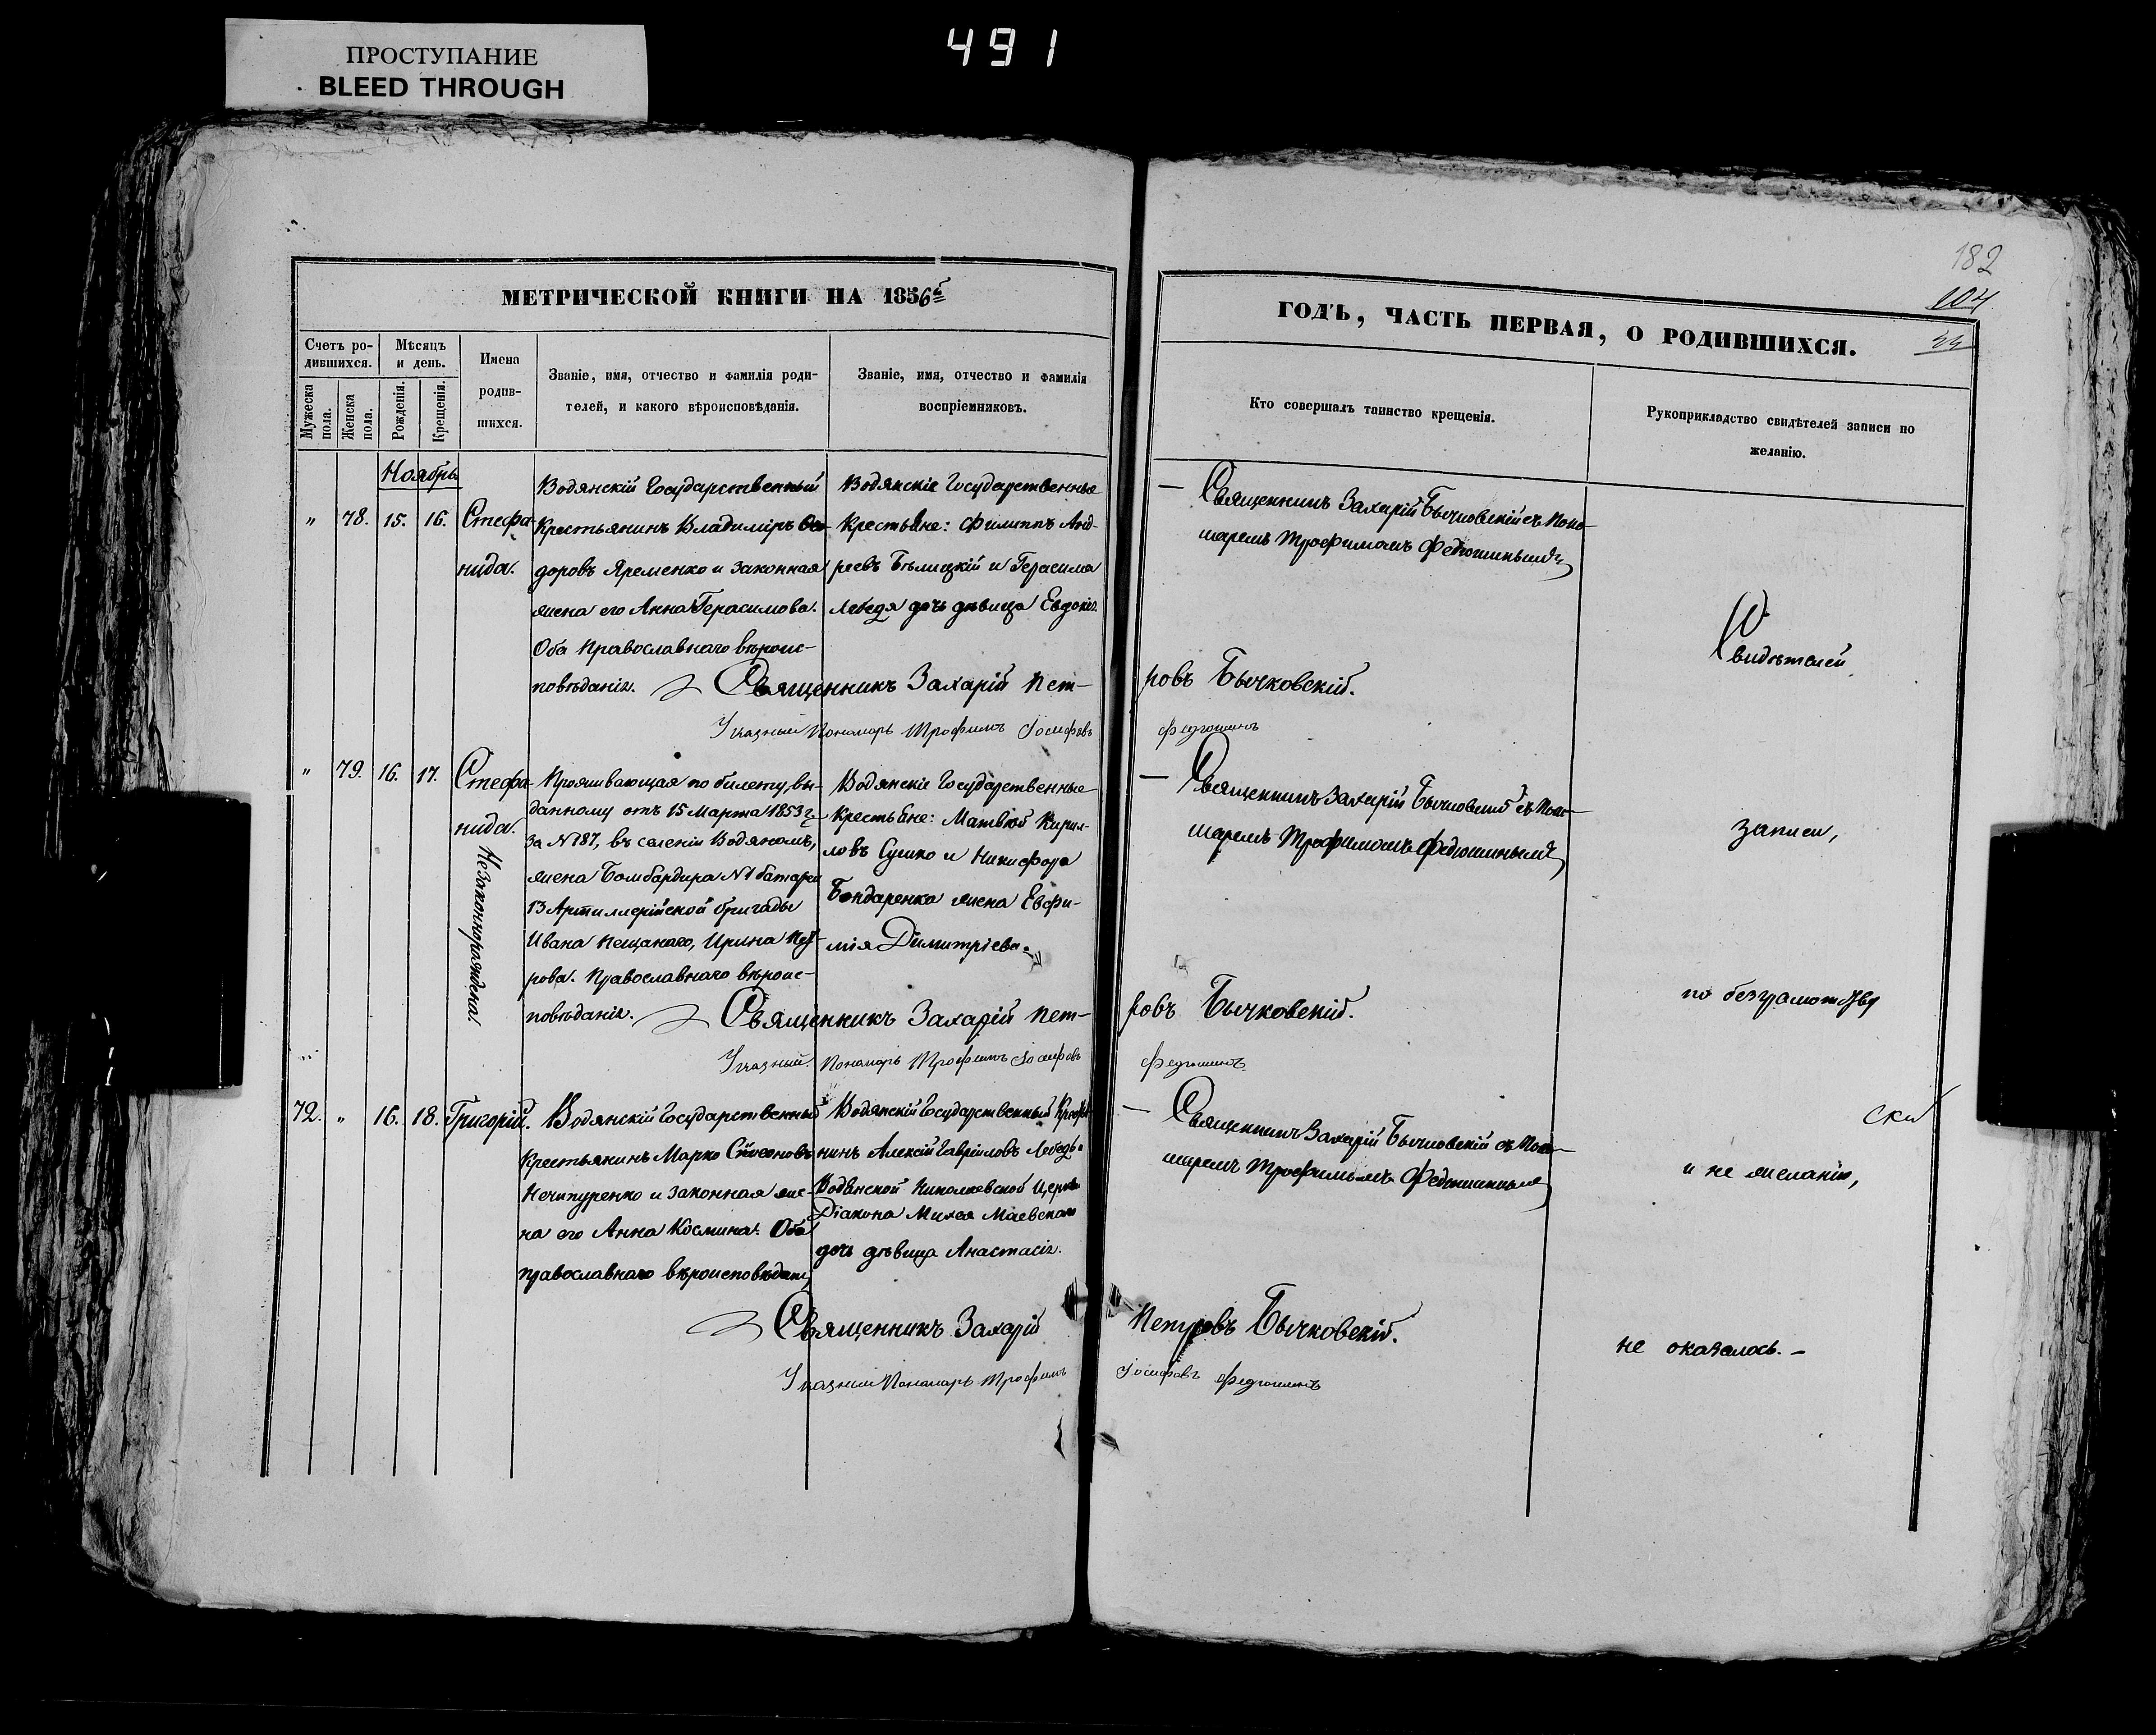 491
ПРОСТУПАНИЕ
BLEED THROUGH
182
104
МЕТРИЧЕСКОЙ КНИГИ НА 1856
ГОДЪ, ЧАСТЬ ПЕРВАЯ, О РОДИВШИХСЯ.
Счетъ ро-
дившихся.
Мѣсяцъ
и день.
Мужеска
пола.
Женска
пола.
Рожденія.
Крещенія.
Имена
родив-
шихся.
Званіе, имя, отчество и фамилія роди-
телей, и какого вѣроисповѣданія.
Званіе, имя, отчество и фамилія
воспріемниковъ.
Кто совершалъ таинство крещенія.
Рукоприкладство свидѣтелей записи по
желанію.
Ноябрь
" 78. 15. 16.
Стефа-
нида.
Водянскій Государственный
Крестьянинъ Владиміръ Ѳео-
доровъ Яременко и законная
жена его Анна Герасимова.
Оба Православнаго вѣроис-
повѣданія.
Водянскіе Государственные
Крестьяне: Филиппъ Анд-
реевъ Бѣлицкій и Герасима
Лебедя дочь дѣвица Евдокія.
Священникъ Захарій Бычковскій съ Поно-
маремъ Трофимомъ Федюшинымъ
Священникъ Захарій Пет-
ровъ Бычковскій.
Указный Пономарь Трофимъ Іосифовъ
Федюшинъ
Свидѣтелей
" 79. 16. 17.
Стефа-
нида.
Незаконнорождена.
Проживающая по билету, вы-
данному отъ 15 Марта 1853 г.
за N 787, въ селеніи Водяномъ,
жена Бомбардира N 1 батареи
13 Артиллерійской бригады
Ивана Пещанаго, Ирина Пет-
рова. Православнаго вѣроис-
повѣданія.
Водянскіе Государственные
Крестьяне: Матвѣй Кирил-
ловъ Сушко и Никифора
Бондаренка жена Евфи-
мія Димитріева.
Священникъ Захарій Бычковскій съ Поно-
маремъ Трофимомъ Федюшинымъ
записи,
Священникъ Захарій Пет-
ровъ Бычковскій.
Указный Пономарь Трофимъ Іосифовъ
Федюшинъ.
по безграмотству
72. " 16. 18.
Григорій.
Водянскій Государственный
Крестьянинъ Марко
Нечипуренко и законная же-
на его Анна Космина. Оба
православнаго вѣроисповѣдан.
Водянскій Государственный Крестья-
нинъ Алексій Гавріиловъ Лебедь и
Водянской Николаевской Церкви
Діакона Михея Маевскаго
дочь дѣвица Анастасія.
Священникъ Захарій Бычковскій съ Поно-
маремъ Трофимомъ Федюшинымъ
и не желанію,
Священникъ Захарій
Петровъ Бычковскій.
Указный Пономарь Трофимъ
Іосифовъ Федюшинъ
не оказалось.